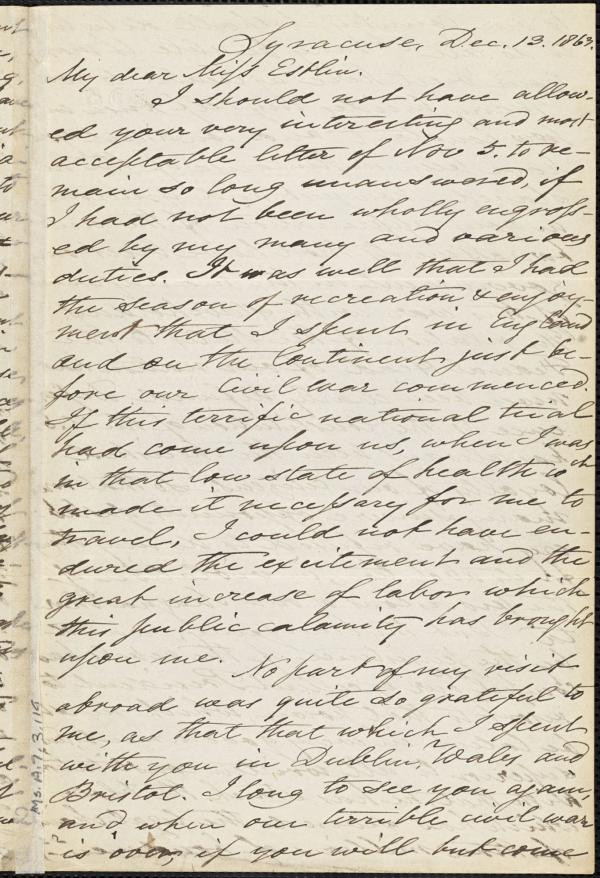 Syracuse, Dec. 13. 1863.
My dear Miss Estlin.
I should not have allow-
ed your very interesting and most
acceptable letter of Nov 5. to re-
main so long unanswered, if
I had not been wholly engross-
ed by my many and various
duties. It was well that I had
the season of recreation & enjoy-
ment that I spent in England
and on the Continent just be-
fore our Civil War commenced.
If this terrific national trial
had come upon us, when I was
in that low state of health wch
made it necessary for me to
travel, I could not have en-
dured the excitement and the
great increase of labor which
this public calamity has brought
upon me.
No part of my visit
abroad was quite so grateful to
me, as that that which I spent
with you in Dublin, Wales and
Bristol. I long to see you again,
and when our terrible civil war
is over, if you will but come
Ms.A.7.3.115